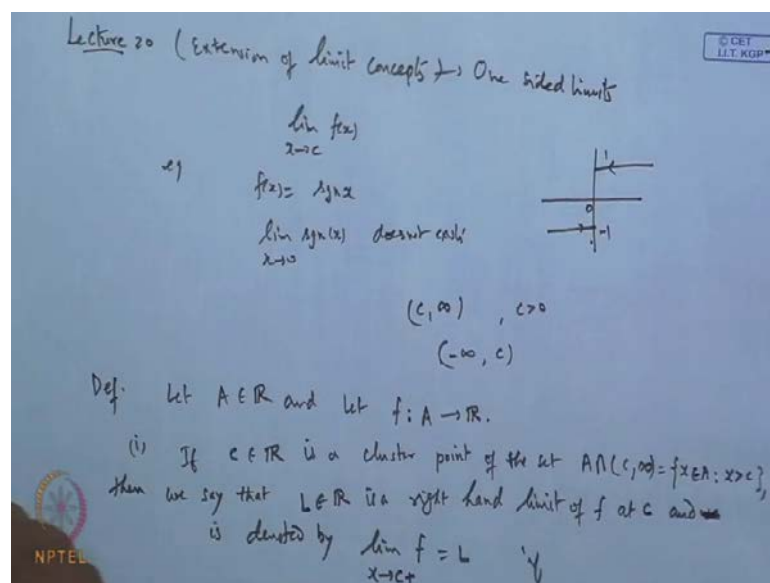 Lecture 20 (Extension of limit concepts) → One sided limits
© CET
I.I.T. KGP
lim f(x)
x→c
eg f(x) = sgn x
lim sgn(x) doesnot exist
x→0
1
0
-1
(c, ∞) , c>0
(-∞, c)
Def. Let A ∈ ℝ and let f: A → ℝ.
(i) If c ∈ ℝ is a cluster point of the set A∩(c,∞) = {x∈A: x>c},
then we say that L∈ℝ is a right hand limit of f at c and
is denoted by lim f = L if
x→c+
NPTEL